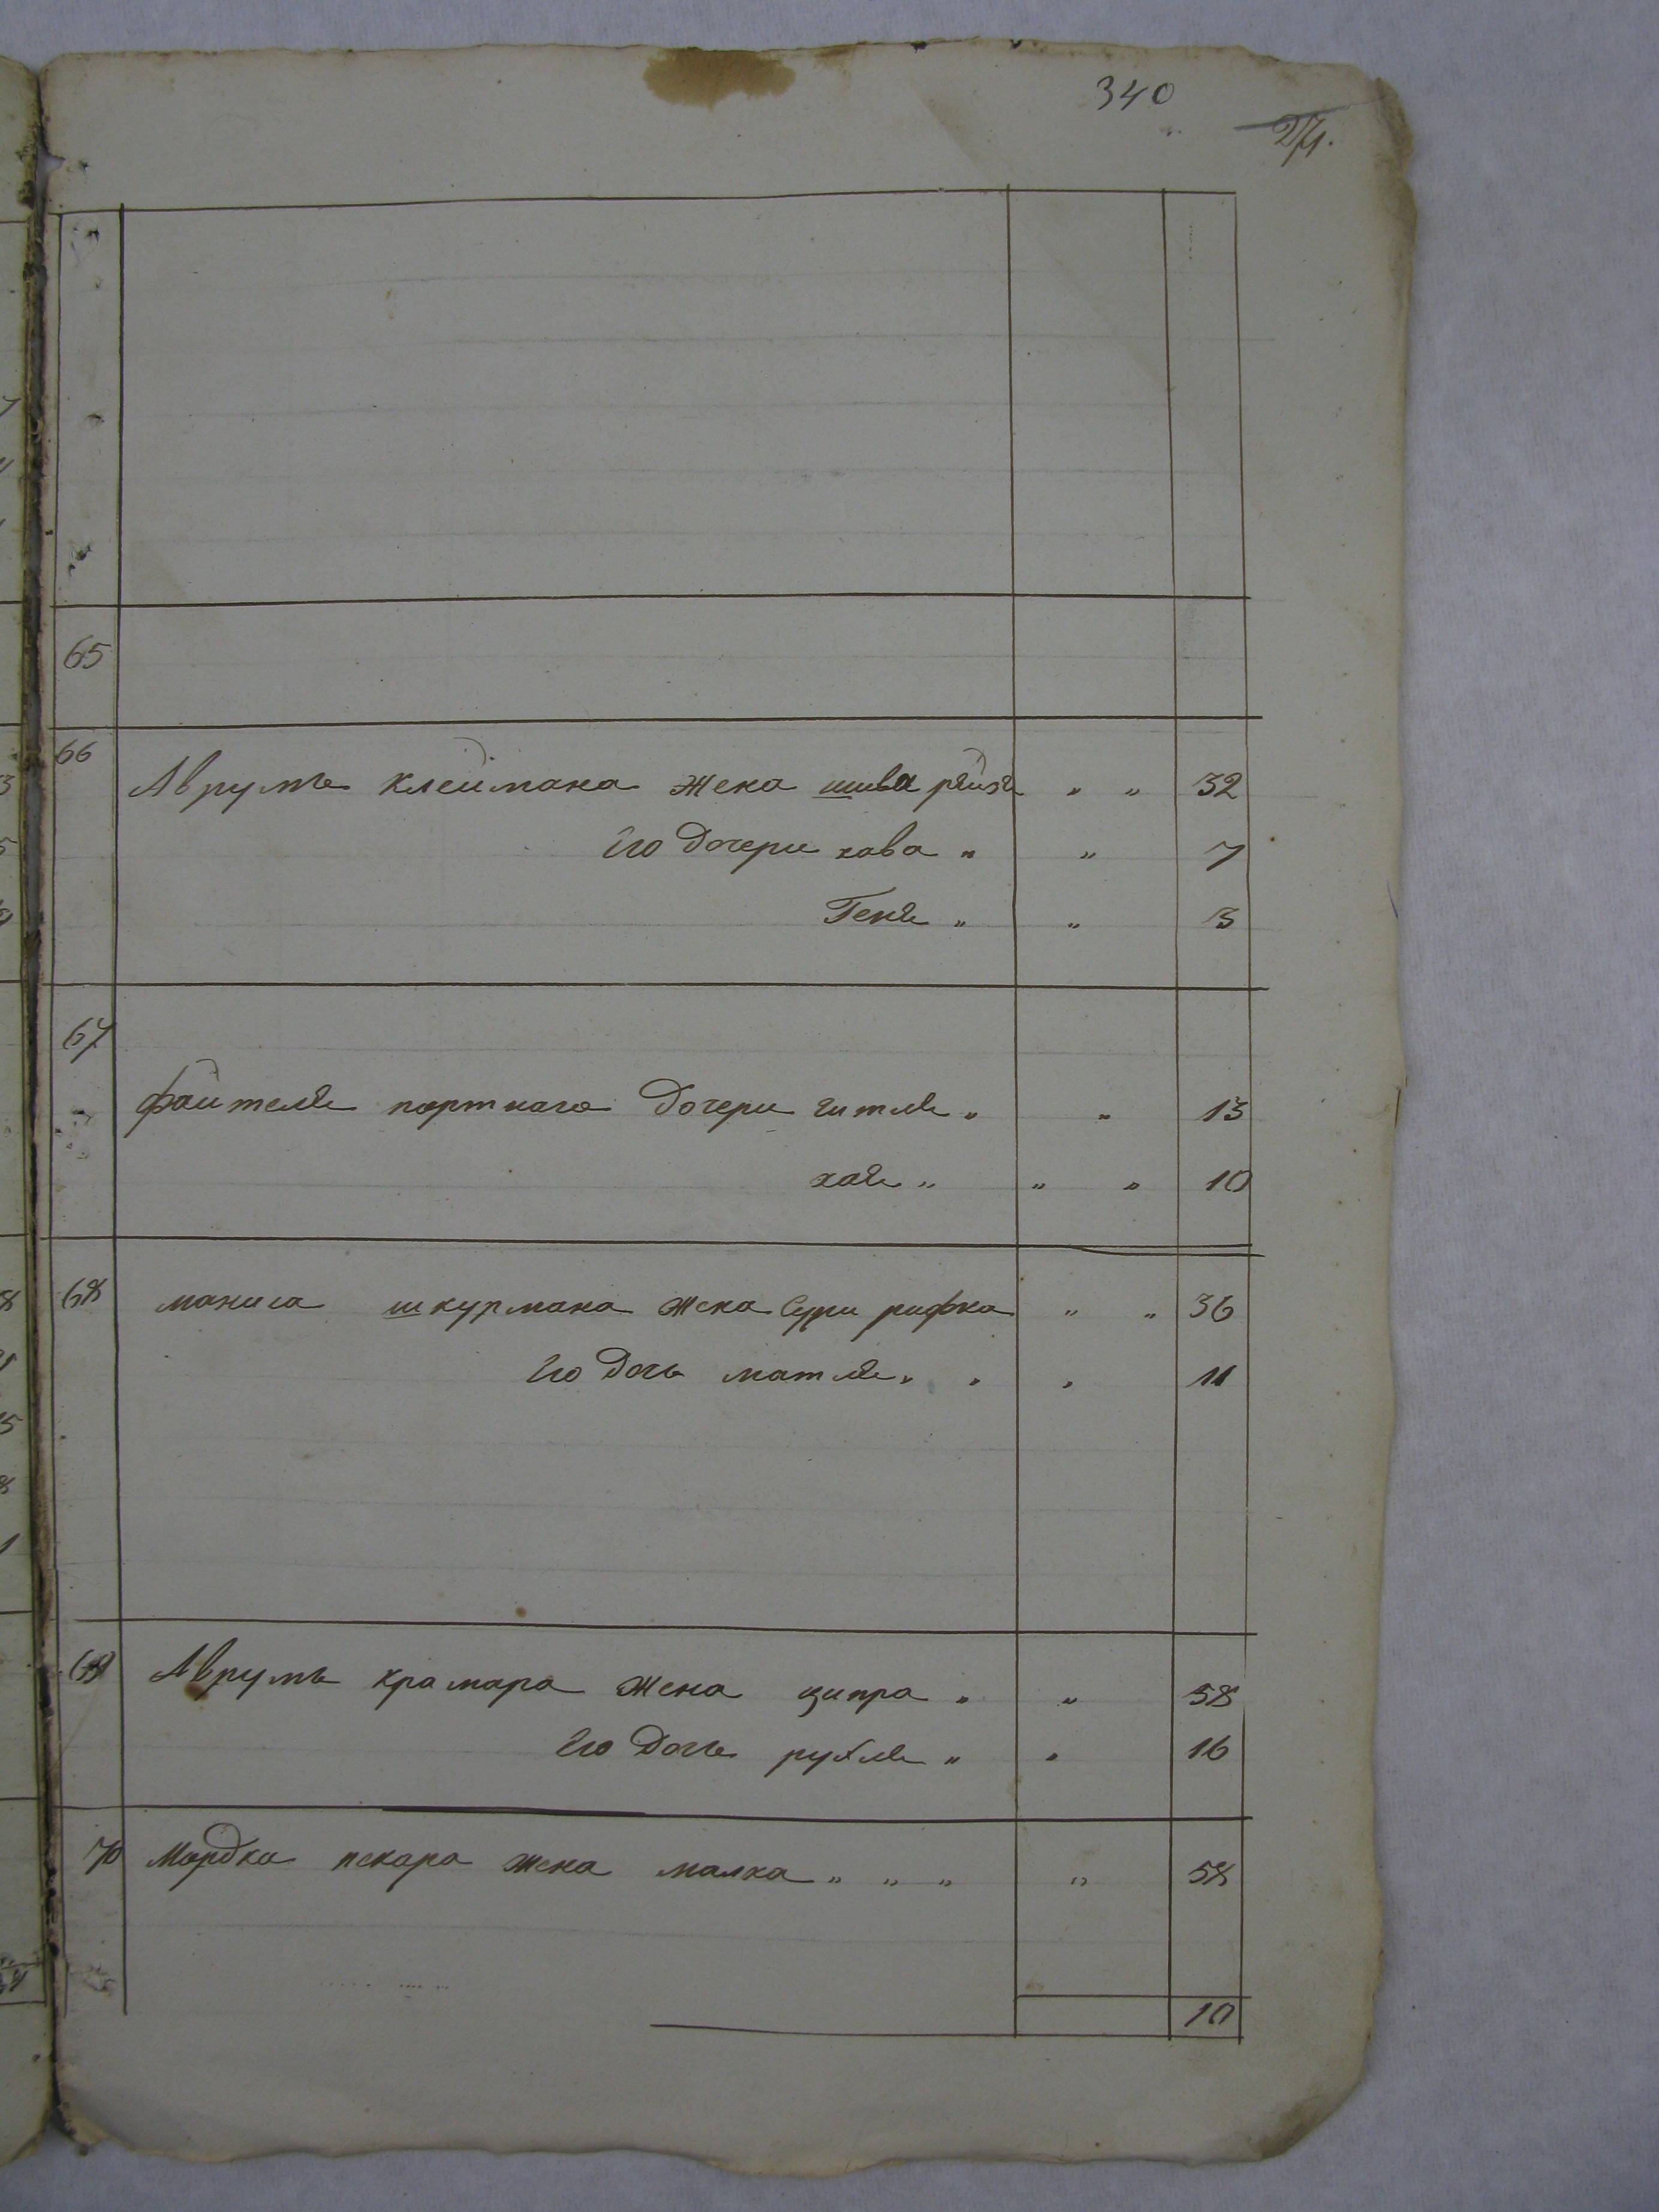 340
271.
65
66
Аврумъ клеймана жена шива рейзя „ „ 32
Его дочери хава „ „ 7
Геня „ „ 3
67
файтеля портнаго дочери гитля „ „ 13
хая „ „ „ 10
68 маниса шкурмана жена Сури рифка „ „ 36
Его дочь матля „ „ „ 11
69 Аврумъ крамара жена ципра „ „ 58
Его дочь рухля „ „ 16
70 Мордка пекара жена малка „ „ „ „ 58
10